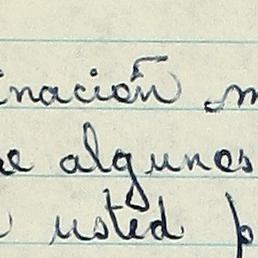 inación m
e algunos
usted p